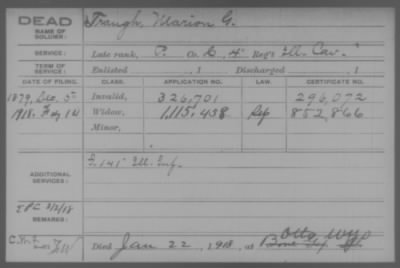 DEAD
NAME OF SOLDIER: Traugh, Marion G.
SERVICE: Late rank, P. Co. L, 4" Reg't Ill. Cav.
TERM OF SERVICE: Enlisted , 1 Discharged , 1
DATE OF FILING. CLASS. APPLICATION NO. LAW. CERTIFICATE NO.
1879, Dec. 5 Invalid, 326,701 296,072
1918. 14 Widow, 1,115,458 852,866
Minor,
ADDITIONAL SERVICES: F. 145" Ill. Inf.
REMARKS:
Died Jan 22, 1918, at Otto, Wyo